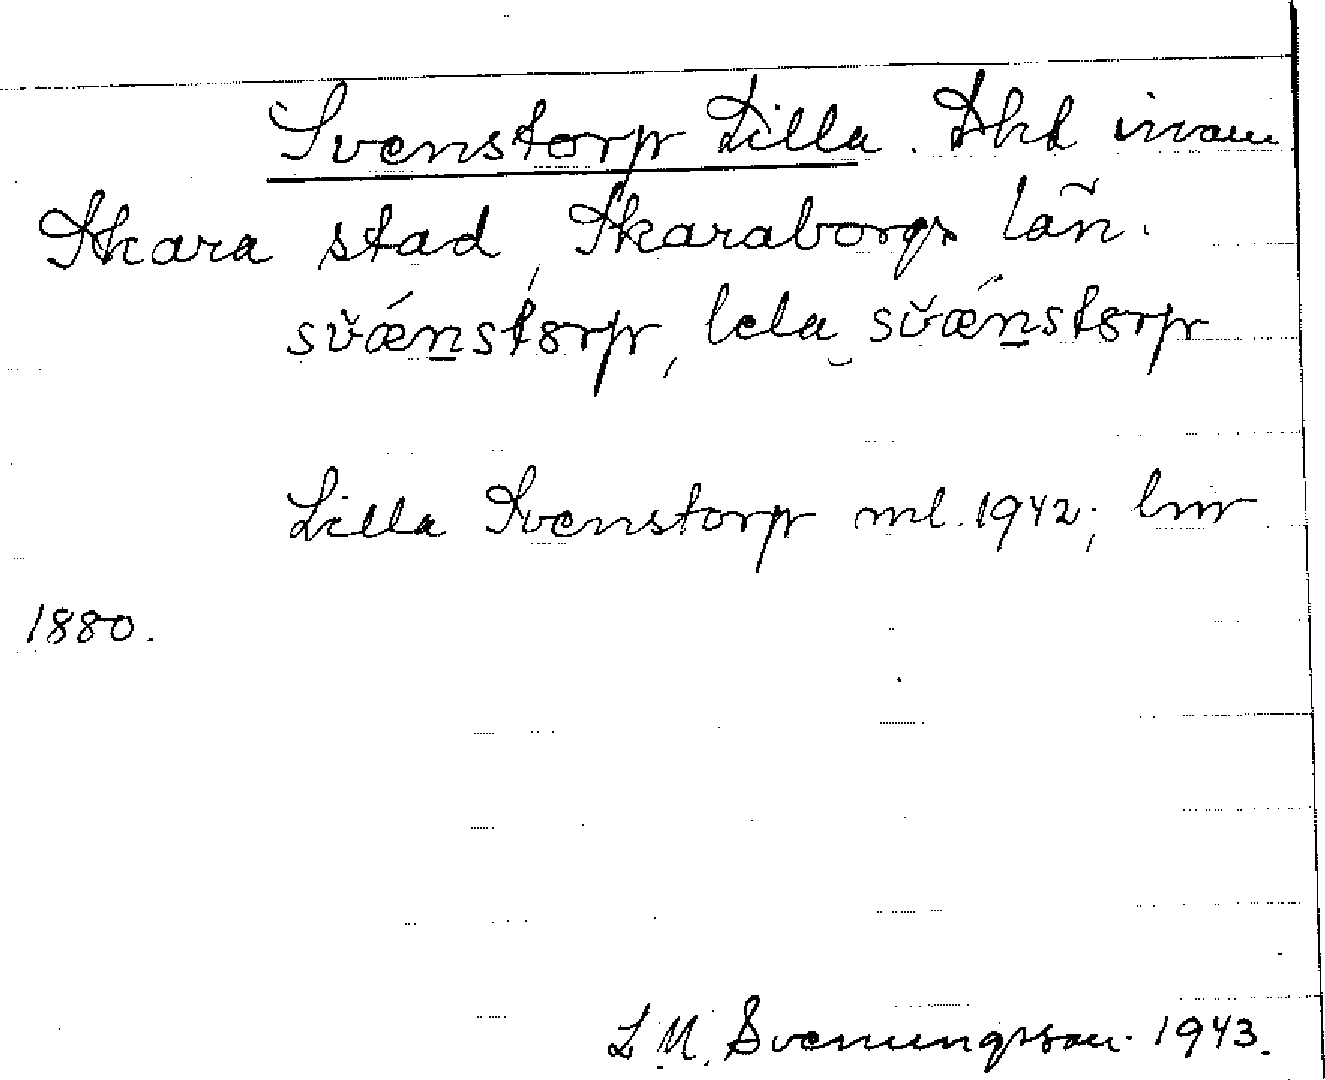 Svenstorp Lilla. Lht inom
Skara stad, Skaraborgs län.
svǽnstorp, lela svǽnstorp
Lilla Svenstorp ml. 1942; lmr
1880.
L M. Svenungsson 1943.